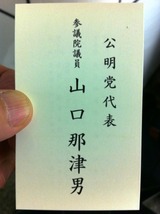 公明党代表
参議院議員
山口那津男